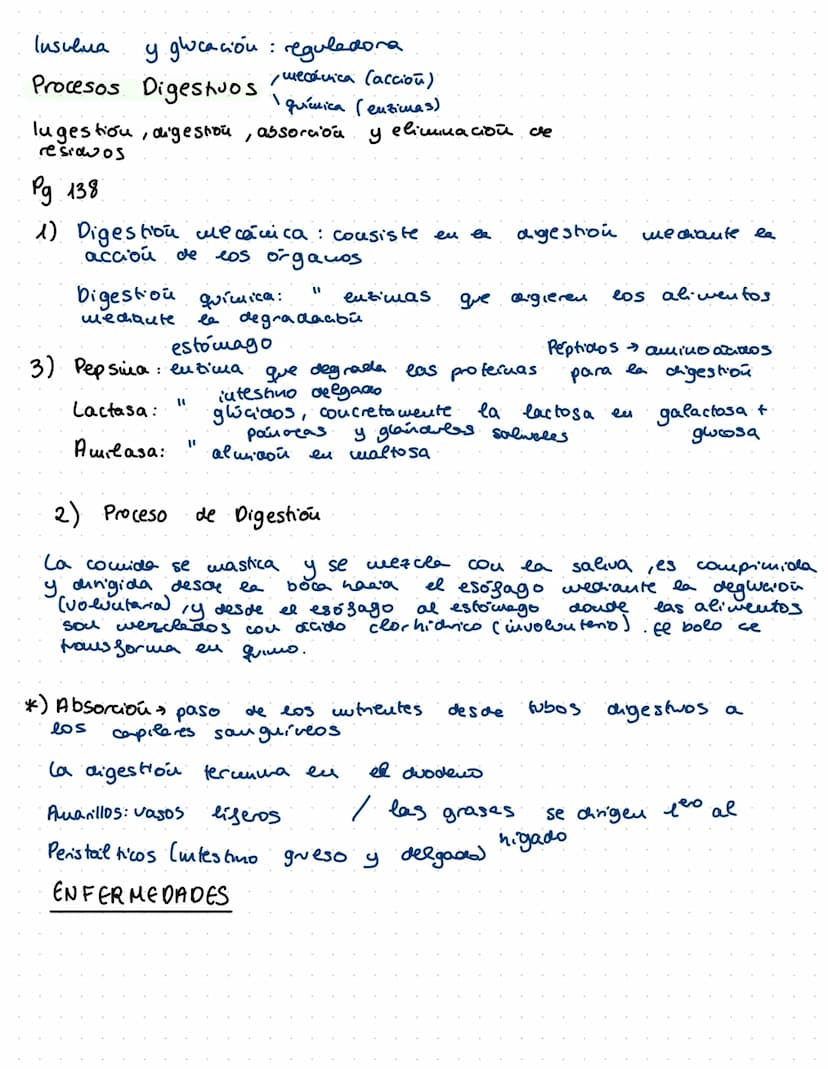 Insulina y glucación : reguladora
Procesos Digestivos / mecánica (acción)
\ química (enzimas)
Ingestión, digestión, absorción y eliminación de
residuos
Pg 138
1) Digestión mecánica : consiste en la digestión mediante la
acción de los órganos
Digestión química: " enzimas que digieren los alimentos
mediante la degradación
estómago Péptidos → aminoácidos
3) Pepsina : enzima que degrada las proteínas para la digestión
intestino delgado
Lactasa: " glúcidos, concretamente la lactosa en galactosa +
páncreas y glándulas salivales glucosa
Amilasa: " almidón en maltosa
2) Proceso de Digestión
La comida se mastica y se mezcla con la saliva, es comprimida
y dirigida desde la boca hacia el esófago mediante la deglución
(voluntaria), y desde el esófago al estómago donde las alimentos
son mezclados con ácido clorhídrico (involuntario). El bolo se
transforma en quimo.
*) Absorción → paso de los nutrientes desde tubos digestivos a
los capilares sanguíneos
La digestión termina en el duodeno
Amarillos: vasos líferos / las grasas se dirigen 1ero al
hígado
Peristálticos (intestino grueso y delgado)
ENFERMEDADES